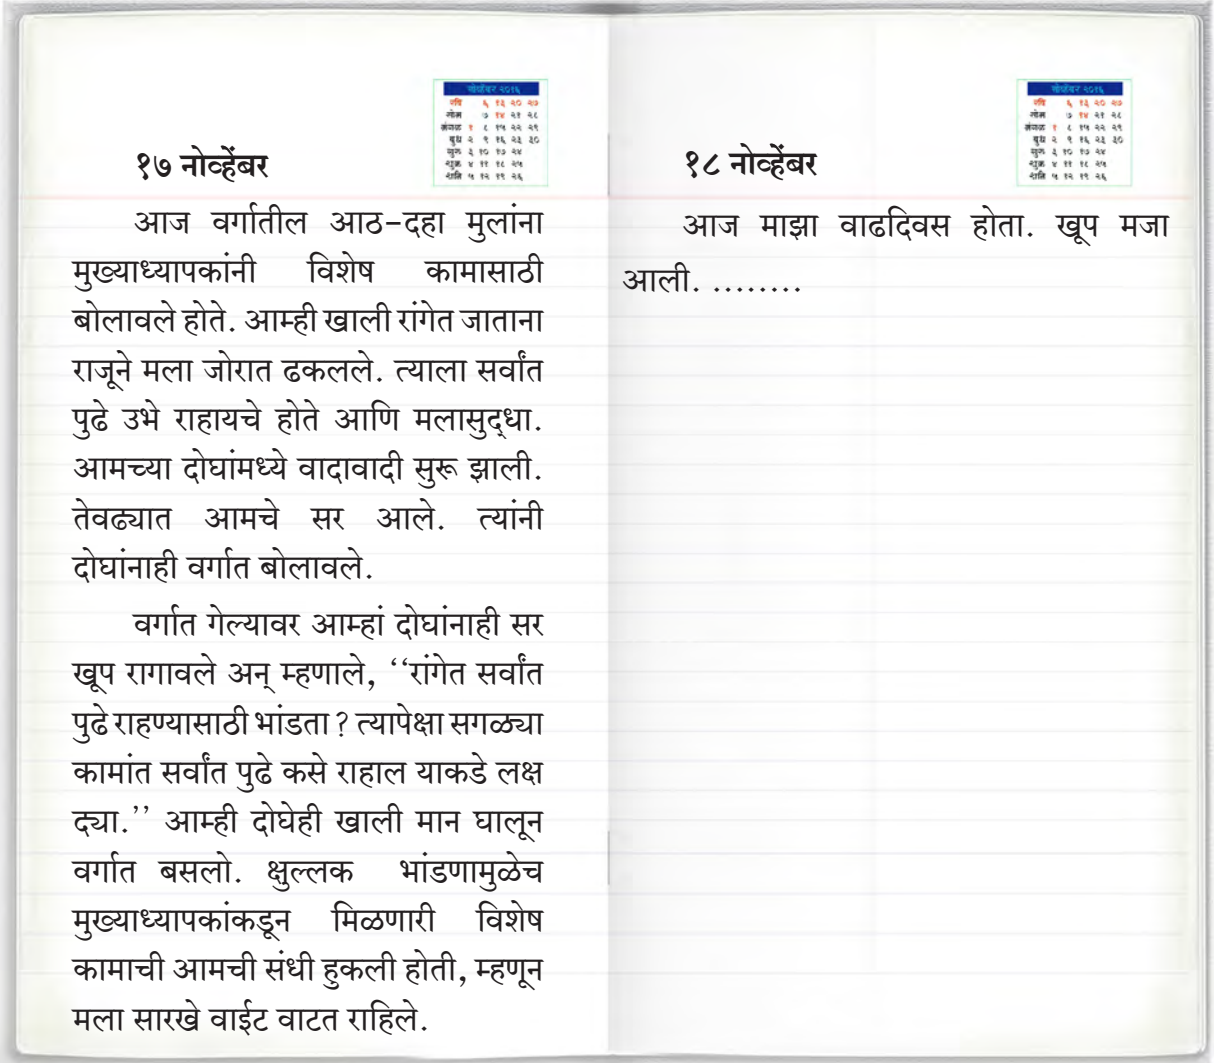 नोव्हेंबर २०१६
रवि ६ १३ २० २७
सोम ७ १४ २१ २८
मंगळ १ ८ १५ २२ २९
बुध २ ९ १६ २३ ३०
गुरु ३ १० १७ २४
शुक्र ४ ११ १८ २५
शनि ५ १२ १९ २६
१७ नोव्हेंबर
आज वर्गातील आठ-दहा मुलांना
मुख्याध्यापकांनी विशेष कामासाठी
बोलावले होते. आम्ही खाली रांगेत जाताना
राजूने मला जोरात ढकलले. त्याला सर्वांत
पुढे उभे राहायचे होते आणि मलासुद्धा.
आमच्या दोघांमध्ये वादावादी सुरू झाली.
तेवढ्यात आमचे सर आले. त्यांनी
दोघांनाही वर्गात बोलावले.
वर्गात गेल्यावर आम्हां दोघांनाही सर
खूप रागावले अन् म्हणाले, ‘‘रांगेत सर्वांत
पुढे राहण्यासाठी भांडता? त्यापेक्षा सगळ्या
कामांत सर्वांत पुढे कसे राहाल याकडे लक्ष
द्या.’’ आम्ही दोघेही खाली मान घालून
वर्गात बसलो. क्षुल्लक भांडणामुळेच
मुख्याध्यापकांकडून मिळणारी विशेष
कामाची आमची संधी हुकली होती, म्हणून
मला सारखे वाईट वाटत राहिले.
नोव्हेंबर २०१६
रवि ६ १३ २० २७
सोम ७ १४ २१ २८
मंगळ १ ८ १५ २२ २९
बुध २ ९ १६ २३ ३०
गुरु ३ १० १७ २४
शुक्र ४ ११ १८ २५
शनि ५ १२ १९ २६
१८ नोव्हेंबर
आज माझा वाढदिवस होता. खूप मजा
आली. ........